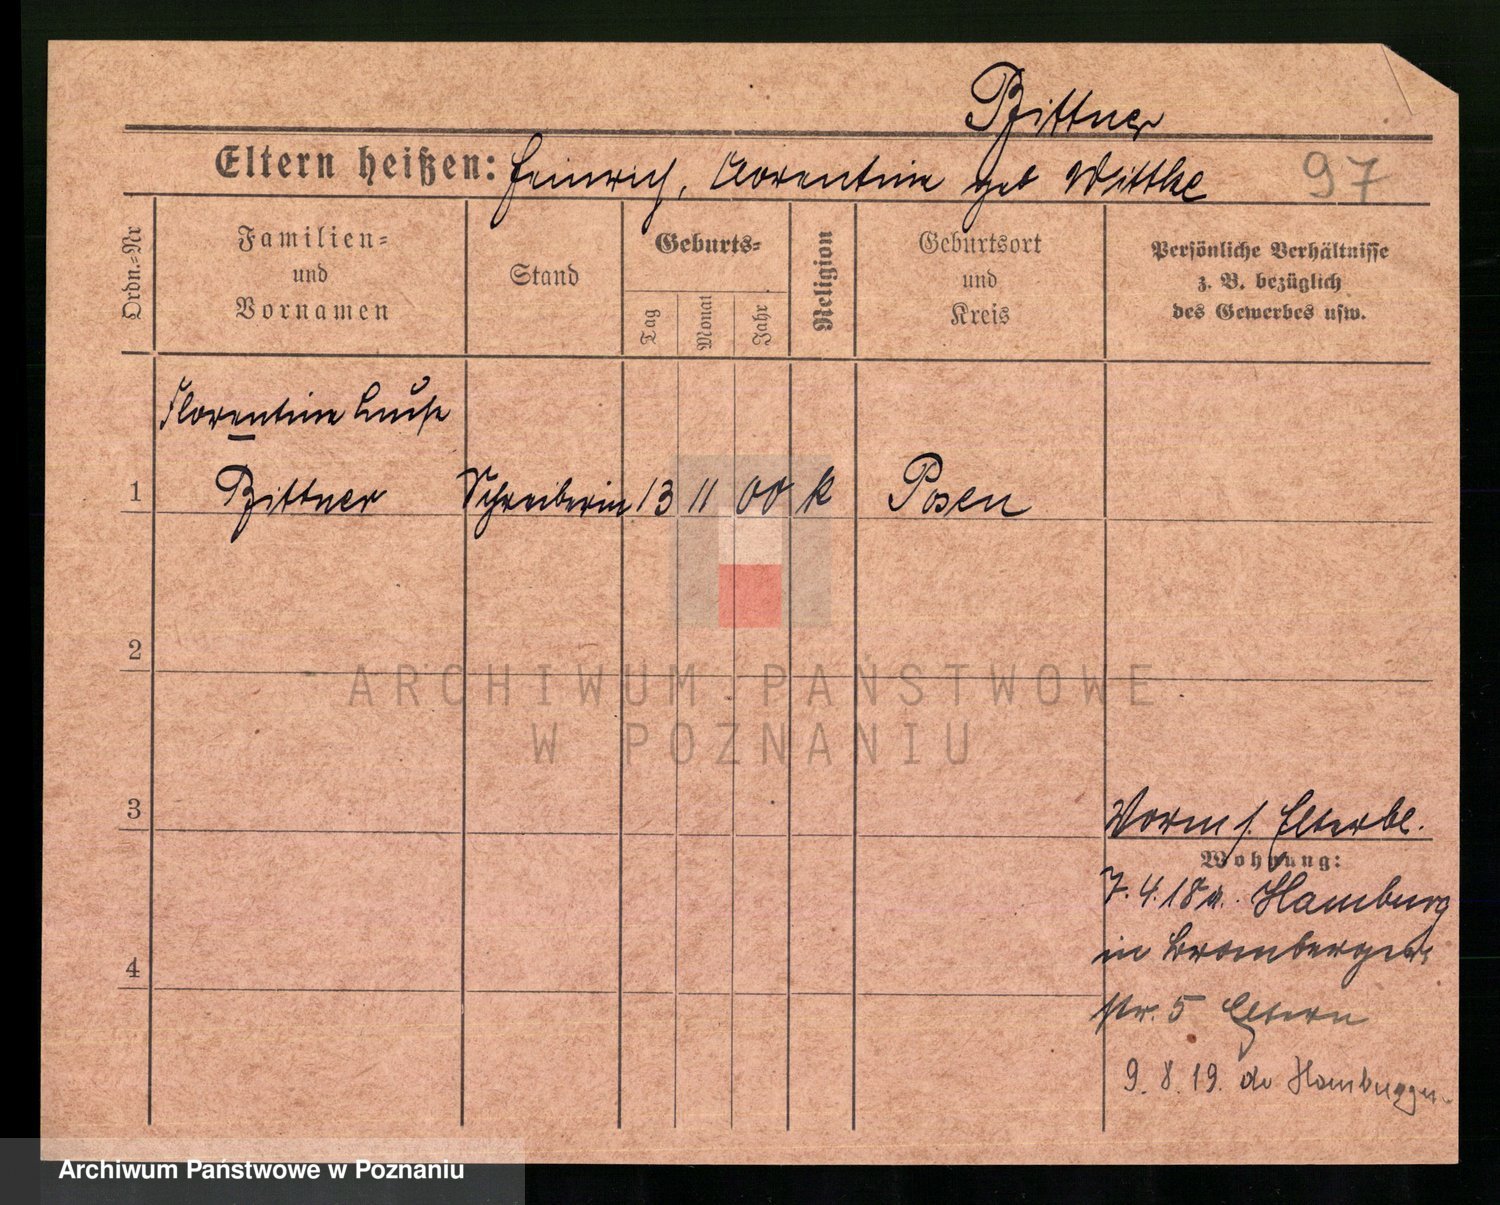 Bittner
Eltern heißen: Heinrich, Florentine geb Wittke 97
Ordn.-Nr
Familien-
und
Vornamen
Stand
Geburts-
Tag
Monat
Jahr
Religion
Geburtsort
und
Kreis
Persönliche Verhältnisse
z. B. bezüglich
des Gewerbes usw.
Florentine Luise
1 Bittner Schreiberin 13 11 00 k Posen
2
ARCHIWUM PAŃSTWOWE
W POZNANIU
3
Vorm s. Elternbl.
Wohnung:
7.4.18 n. Hamburg
in Bromberger
str. 5 Eltern
4
9.8.19. Hamburg
Archiwum Państwowe w Poznaniu